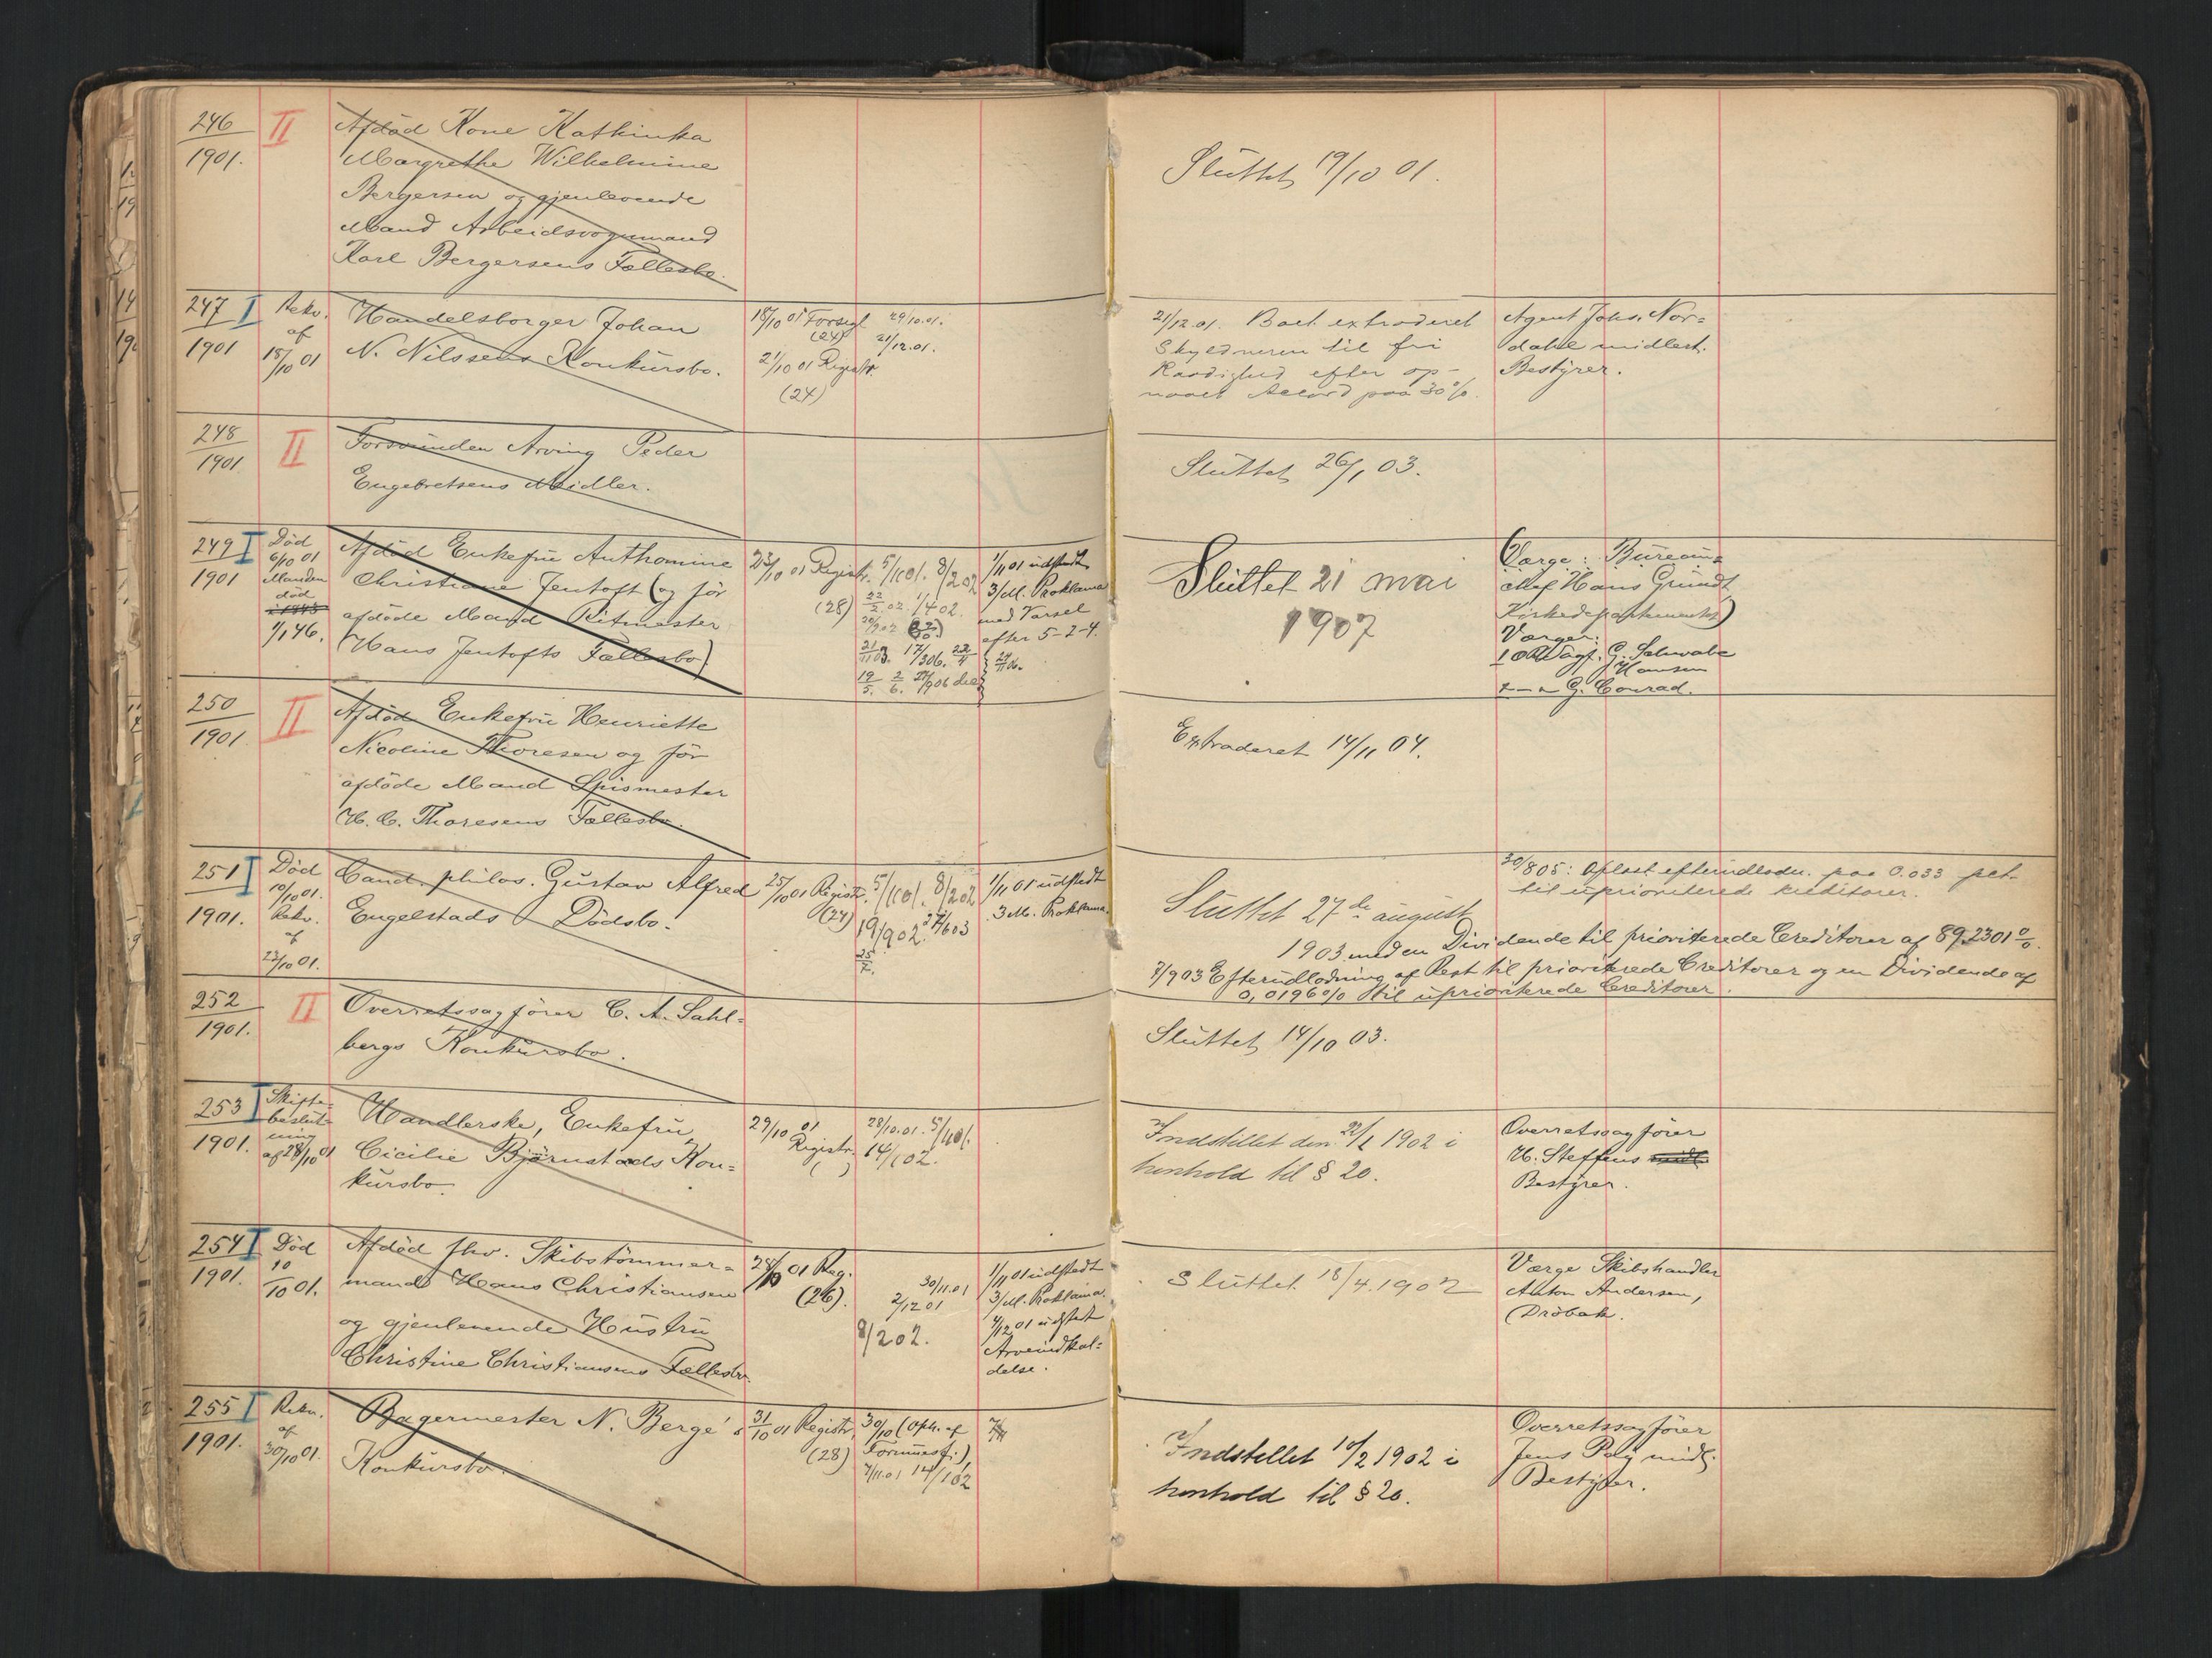 246
1901.
II
Afdöd Kone Kathinka
Margrethe Wilhelmine
Bergersen og gjenlevende
Mand Arbeidsvognmand
Karl Bergersens Fællesbo.
Sluttet 19/10 01.
247 I
1901
Rekv.
af
18/10 01
Handelsborger Johan
N. Nilssens Konkursbo.
18/10 01 Forsegl.
(24)
21/10 01 Registr.
(24)
29/10.01.
21/12.01.
21/12.01. Boet extraderet
Skyldneren til fri
Raadighed efter op-
naaet Accord paa 30%.
Agent Johs. Nor=
dahl midlert.
Bestyrer.
248
1901
II
Forsvunden Arving Peder
Engebretsens Midler.
Sluttet 26/1 03.
249 I
1901
Död
6/10 01
Manden
död
i 1845
1/1 46.
Afdöd Enkefru Anthomine
Christiane Jentoft (og för
afdöde Mand Ritmester
Hans Jentofts Fællesbo)
23/10 01 Registr.
(28)
5/11 01. 8/2 02
22/2.02. 1/4 02.
21/11 03. 17/3 06. 22/4
19/5. 2/6.
1/11 01 udstedt
3/M. Proklama
med Varsel
efter 5-2-4.
Sluttet 21 mai
1907
(Værge: Bureau=
chef Hans Grundt,
Kirkedepartementet)
Værger:
1 ORSagf. G. Schwabe
Hansen
2 — " G. Conrad.
250
1901
II
Afdöd Enkefru Henriette
Nicoline Thoresen og för
afdöde Mand Spismester
H. C. Thoresens Fællesbo.
Extraderet 14/11 04.
251 I
1901.
Död
10/10 01.
Rekv.
af
23/10 01.
Cand. philos. Gustav Alfred
Engelstads Dödsbo.
25/10 01 Registr.
(24)
5/11 01. 8/2 02
19/9 02. 27/6 03
25/7.
1/11 01 udstedt
3 M. Proklama.
30/8 05: Oplæst efterudlodn. paa 0.033 pct.
til uprioriterede kreditorer.
Sluttet 27de august
1903 med en Dividende til prioriterede Creditorer af 89,2301%.
7/9 03 Efterudlodning af Rest til prioriterede Creditorer og en Dividende af
0,0196% til uprioriterede Creditorer.
252
1901.
II
Overretssagförer C. A. Sahl=
bergs Konkursbo.
Sluttet 14/10 03.
253 I
1901.
Skifte-
beslut-
ning
af 28/10 01
Handlerske, Enkefru
Cicilie Björnstads Kon=
kursbo.
29/10 01
Registr.
( )
28/10.01. 5/11 01.
14/1 02.
Indstillet den 21/1 1902 i
henhold til § 20.
Overretssagförer
H. Steffens midl.
Bestyrer.
254 I
1901.
Död
10/10 01.
Afdöd fhv. Skibstömmer=
mand Hans Christiansen
og gjenlevende Hustru
Christine Christiansens Fællesbo.
28/10 01 Reg.
(26).
30/11.01
2/12 01
8/2 02.
1/11 01 udstedt
3/M. Proklama.
4/12 01 udstedt
Arveindkal=
delse.
Sluttet 18/4 1902
Værge Skibshandler
Anton Andersen,
Dröbak.
255 I
1901.
Rekv.
af
30/10 01.
Bagermester N. Berge's
Konkursbo.
31/10 01 Registr.
(28)
30/10 (Oph. af
7/11.01 14/1 02
Indstillet 10/2 1902 i
henhold til § 20.
Overretssagförer
Jens Pay midl.
Bestyrer.